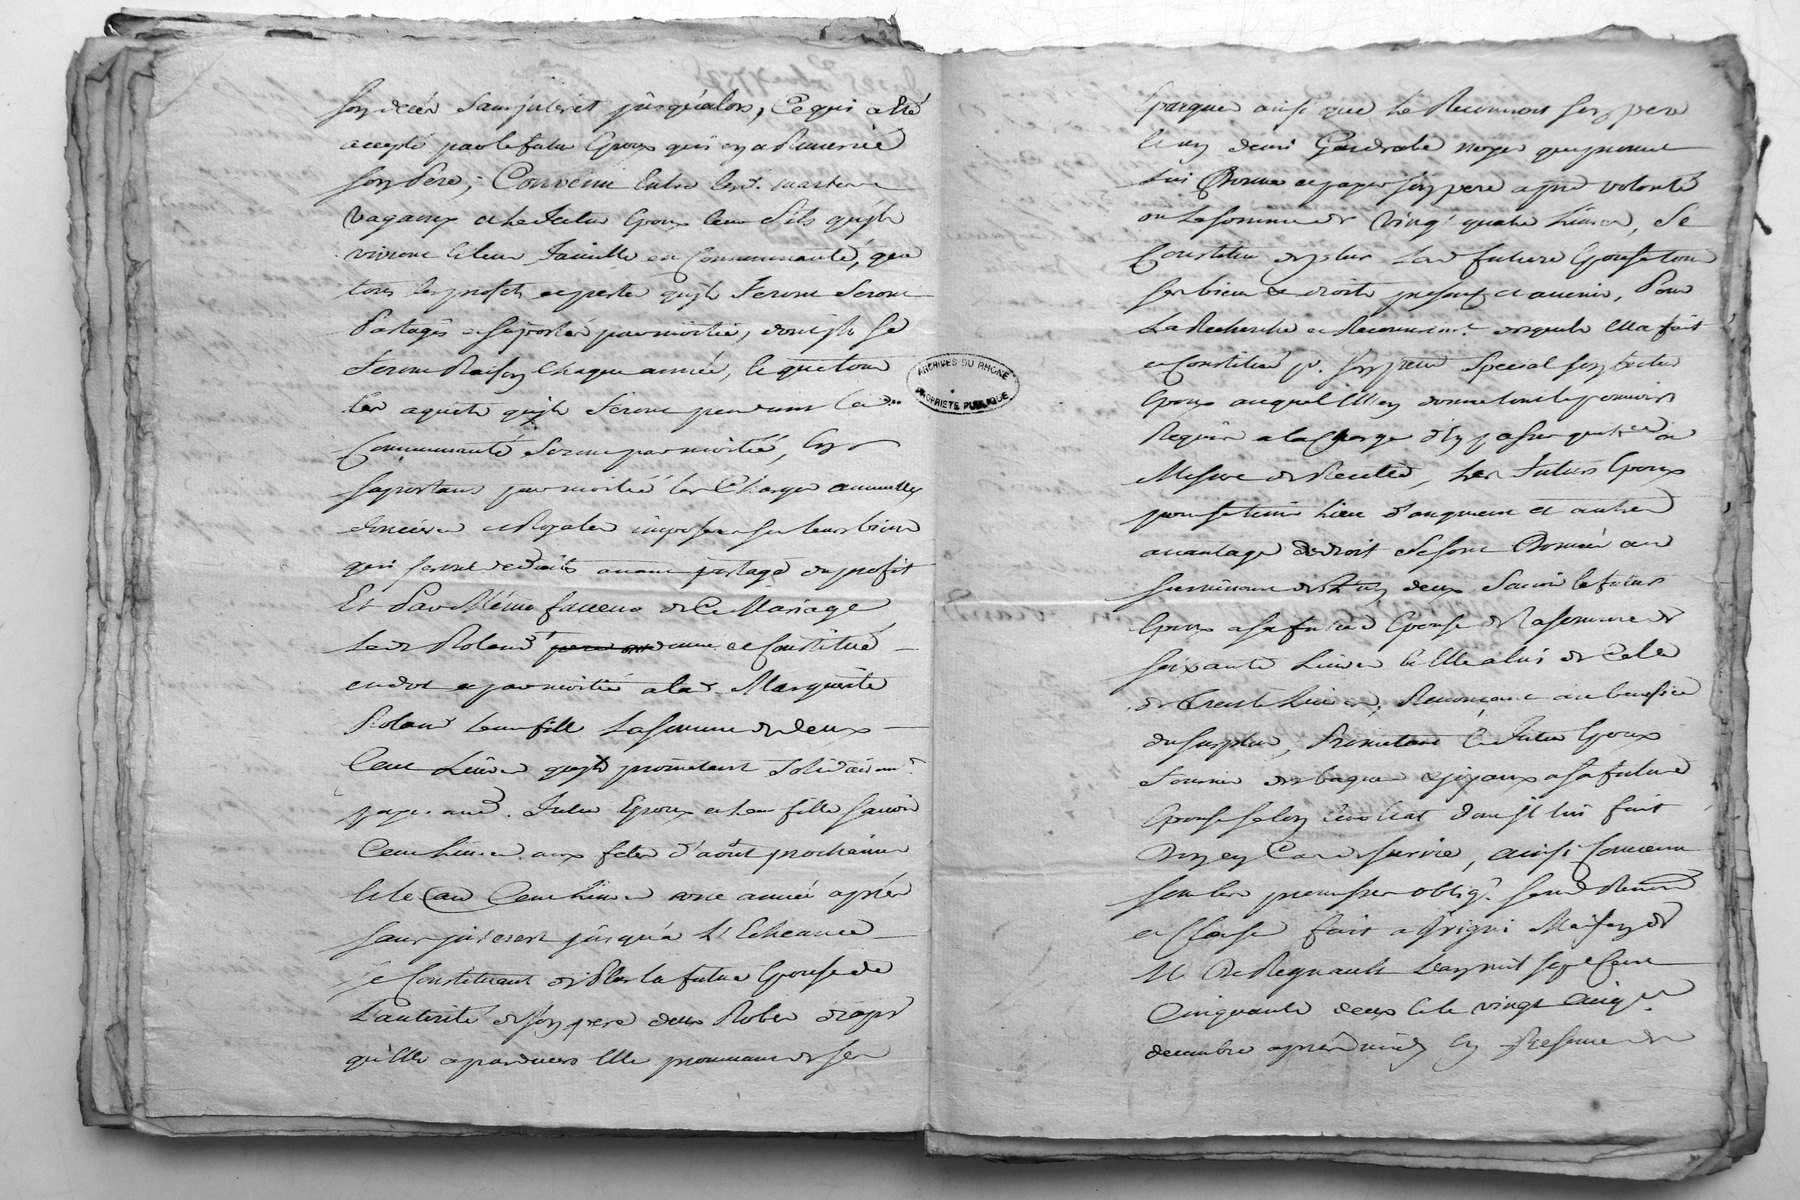 son decés sans interet jusqu'alors, Ce qui a eté
accepté par le futur Epoux qui en a Remercié
son Pere; Convenu Entre les d. mariés
Vaganay et le futur Epoux leur fils qu'ils
vivront et leur famille en Communauté, que
tous les profits et pertes qu'ils feront seront
Partagés et suportés par moitié, dont ils se
feront Raison Chaque année, et que tous
les aquets qu'ils feront pendant la de
Communauté seront par moitié, en
suportant par moitié les Charges annuelles
foncieres et Royales imposées sur leurs biens
qui seront deduits avant partage du profit
Et Par Même faveur de Ce Mariage
Led Roland et sa femme ont Constitué
en dot et par moitié a lad. Marguerite
Roland leur fille La somme de deux
Cent Livres qu'ils promettent solidairemt
payer aud. futur Epoux et leur fille savoir
Cent livres aux fetes d'août prochaines
et les au Cent livres une année aprés
sans interest jusqu'a L'Echeance
se Constituant de Plus la future Epouse de
L'autorité de son pere deux Robes
qu'elle a pardevers elle provenant de ses
Epargnes ainsi que le Reconnoit son pere
et un demi Garderobe noyer que promet
lui Donner et payer son pere a sa volonté
ou La somme de Vingt quatre livres, Se
Constitue de plus Lad future Epouse tous
ses biens et droits presents et avenir, Pour
La Recherche et Recouvremt desquels Elle a fait
et Constitué p. son procur Special son futur
Epoux auquel Elle en donne tout le pouvoir
Requis a la Charge d'en passer quittance a
Mesure de Recette, Les futurs Epoux
pour se tenir lieu d'augment et autres
avantages de droit se sont Donnés au
survivant d'Eux deux Savoir le futur
Epoux a sa future Epouse de La somme de
soixante Livres et elle a lui de Celle
de trente Livres, Renonçant au benefice
du surplus, Promettant le futur Epoux
fournir des bagues et joyaux a sa future
Epouse selon son Etat dont il lui fait
Don en Cas de survie, ainsi Convenu
sous les promesses oblig. soum. Renon
et Clause fait a Grigni Maison de
M. De Regnault L'an mil sept Cent
Cinquante deux et le vingt Cinq
decembre aprés midi En Presence de
ARCHIVES DU RHÔNE
PROPRIÉTÉ PUBLIQUE